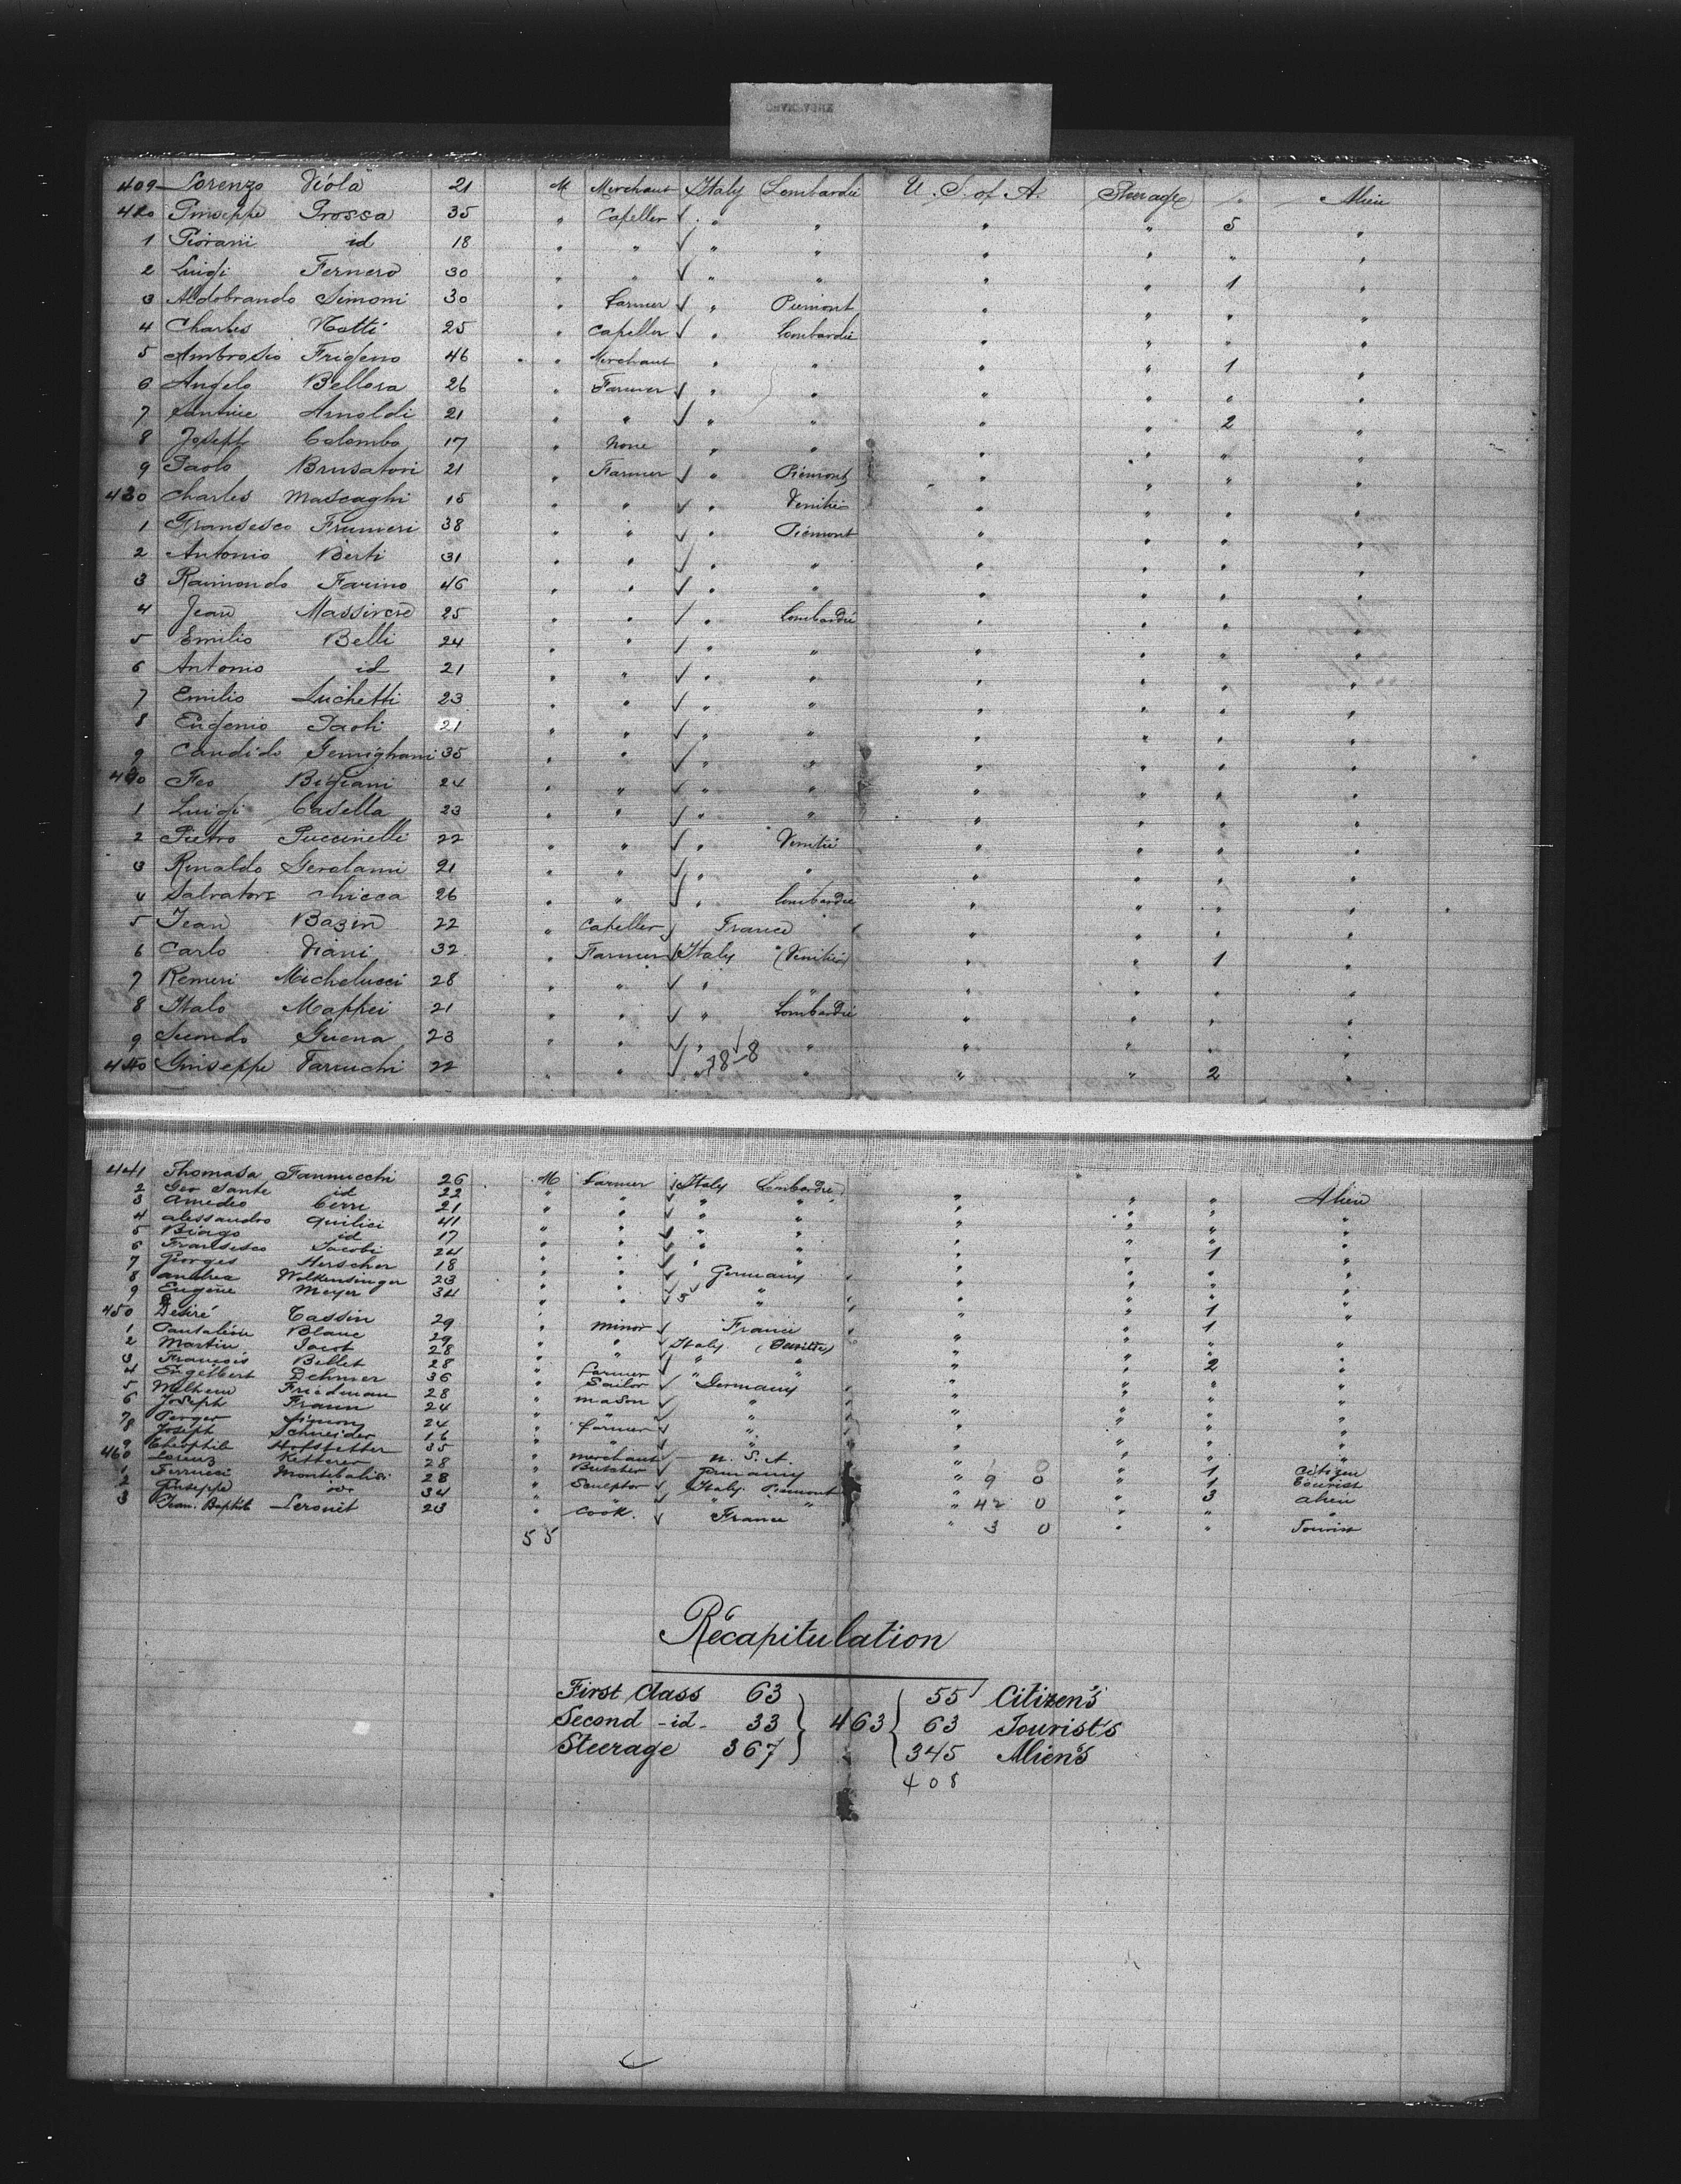 409 Lorenzo Viola 21 M Merchant Italy Lombardie U. S. of A. Steerage Alien
410 Giuseppe Grossa 35 " Capeller " " " " 5 "
1 Giovani id 18 " " " " " " " "
2 Luigi Fernero 30 " " " " " " 1 "
3 Aldobrando Simoni 30 " Farmer " Piemont " " " "
4 Charles Notti 25 " Capeller " Lombardie " " " "
5 Ambrosio Frigeno 46 " Merchant " " " " 1 "
6 Angelo Bellora 26 " Farmer " " " " " "
7 Arnoldi 21 " " " " " " 2 "
8 Joseph Colombo 17 " None " " " " " "
9 Paolo Brusatori 21 " Farmer " Piémont " " " "
420 Charles Mascaghi 15 " " " Venitie " " " "
1 Fransesco Frumeri 38 " " " Piémont " " " "
2 Antonio Berti 31 " " " " " " " "
3 Raimondo Farino 46 " " " " " " " "
4 Jean 25 " " " Lombardie " " " "
5 Emilio Belli 24 " " " " " " " "
6 Antonio id 21 " " " " " " " "
7 Emilio Luchetti 23 " " " " " " " "
8 Eugenio Paoli 21 " " " " " " " "
9 Candido Gemighani 35 " " " " " " " "
430 Feo Bigiani 24 " " " " " " " "
1 Luigi Casella 23 " " " " " " " "
2 Pietro Puccinelli 22 " " " Venitie " " " "
3 Rinaldo Gerolami 21 " " " " " " " "
4 Salvatore Chicca 26 " " " Lombardie " " " "
5 Jean Bazin 22 " Capeller France " " " "
6 Carlo Viani 32 " Farmer Italy (Venitie) " " 1 "
7 Remeri Michelucci 28 " " " " " " " "
8 Italo Maffei 21 " " " Lombardie " " " "
9 Secondo Guena 23 " " " " " " " "
440 Guiseppe Farnuchi 22 " " " 28-8 " " " 2 "
441 Thomasa Fannucchi 26 M Farmer Italy Lombardie " " " Alien
2 Geo Sante id 22 " " " " " " " "
3 Amedeo Cerri 21 " " " " " " " "
4 Alessandro Quilici 41 " " " " " " " "
5 Biago id 17 " " " " " " " "
6 Fransesco Jacobi 24 " " " " " " 1 "
7 Georges Herscher 18 " " Germany " " " "
8 Andrea Wolkensinger 23 " " " " " " "
9 Eugène Meyer 34 " " 5 " " " 1 "
450 Désiré Cassin 29 " Minor France " " 1 "
1 Pantaléon Blanc 29 " " Italy " " " "
2 Martin Jacot 28 " " " " " " 2 "
3 François Bellet 28 " Farmer " " " " " "
4 Engelbert Dehmer 36 " Sailor " Germany " " " "
5 Wilhem Friedman 28 " Mason " " " " "
6 Joseph Fraun 24 " " " " " " "
7 Perger Simon 24 " Farmer " " " " "
8 Joseph Schneider 16 " " " " " " "
9 Théophile Hofstetter 35 " Merchant U. S. A. " " 1 Citizen
460 Lorenz Ketterer 28 " Butcher Germany " 9 0 " 1 Tourist
1 Ferrucci Montebalisi 28 " Sculptor Italy Piemont " 42 0 " 3 Alien
2 Giuseppe 34 " " " " " " " "
3 Jean Baptiste Leronit 23 " Cook. France " 3 0 " " Tourist
55
Récapitulation
First Class 63 55 Citizen's
Second -id- 33 463 63 Tourist's
Steerage 367 345 Alien's
408